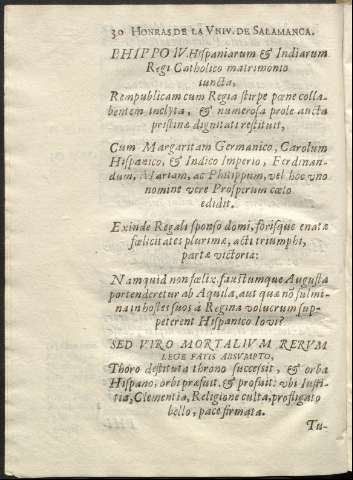 30 HONRAS DE LA VNIV. DE SALAMANCA.
PHIPPO IV. Hispaniarum & Indiarum
Regi Catholico matrimonio
iuncta,
Rempublicam cum Regia stirpe pœne colla-
bentem inclyta, & numerosa prole aucta
pristinæ dignitati restituit,
Cum Margaritam Germanico, Carolum
Hispanico, & Indico Imperio, Ferdinan-
dum, Mariam, ac Philippum, vel hoc vno
nomine vere Prosperum cœlo
edidit.
Exinde Regali sponso domi, forisque enatæ
fœlicitates plurimæ, acti triumphi,
partæ victoriæ:
Nam quid non fœlix, faustumque Augusta
portenderetur ab Aquila, aut quæ nõ fulmi-
na in hostes suos à Regina volucrum sup-
peterent Hispanico Iovi?
SED VIRO MORTALIVM RERVM
LEGE FATIS ABSVMPTO,
Thoro destituta throno successit, & orba
Hispano, orbi præfuit, & profuit: vbi Iusti-
tia, Clementia, Religione culta, profligato
bello, pace firmata.
Tu-